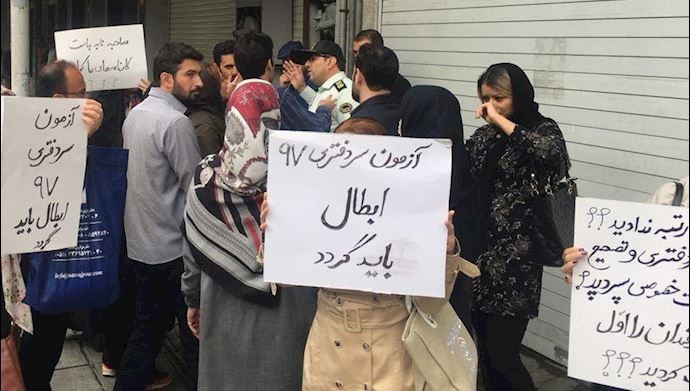 مصاحبه نابه جاست
کارنامه های ما کجاست
؟؟؟
آزمون
سردفتری
۹۷
ابطال باید
گردد
آزمون سردفتری ۹۷
ابطال
باید گردد
رتبه ندادید؟؟
دفتری و تصحیح
خصوصی سپردید؟
را اول
کردید؟؟؟